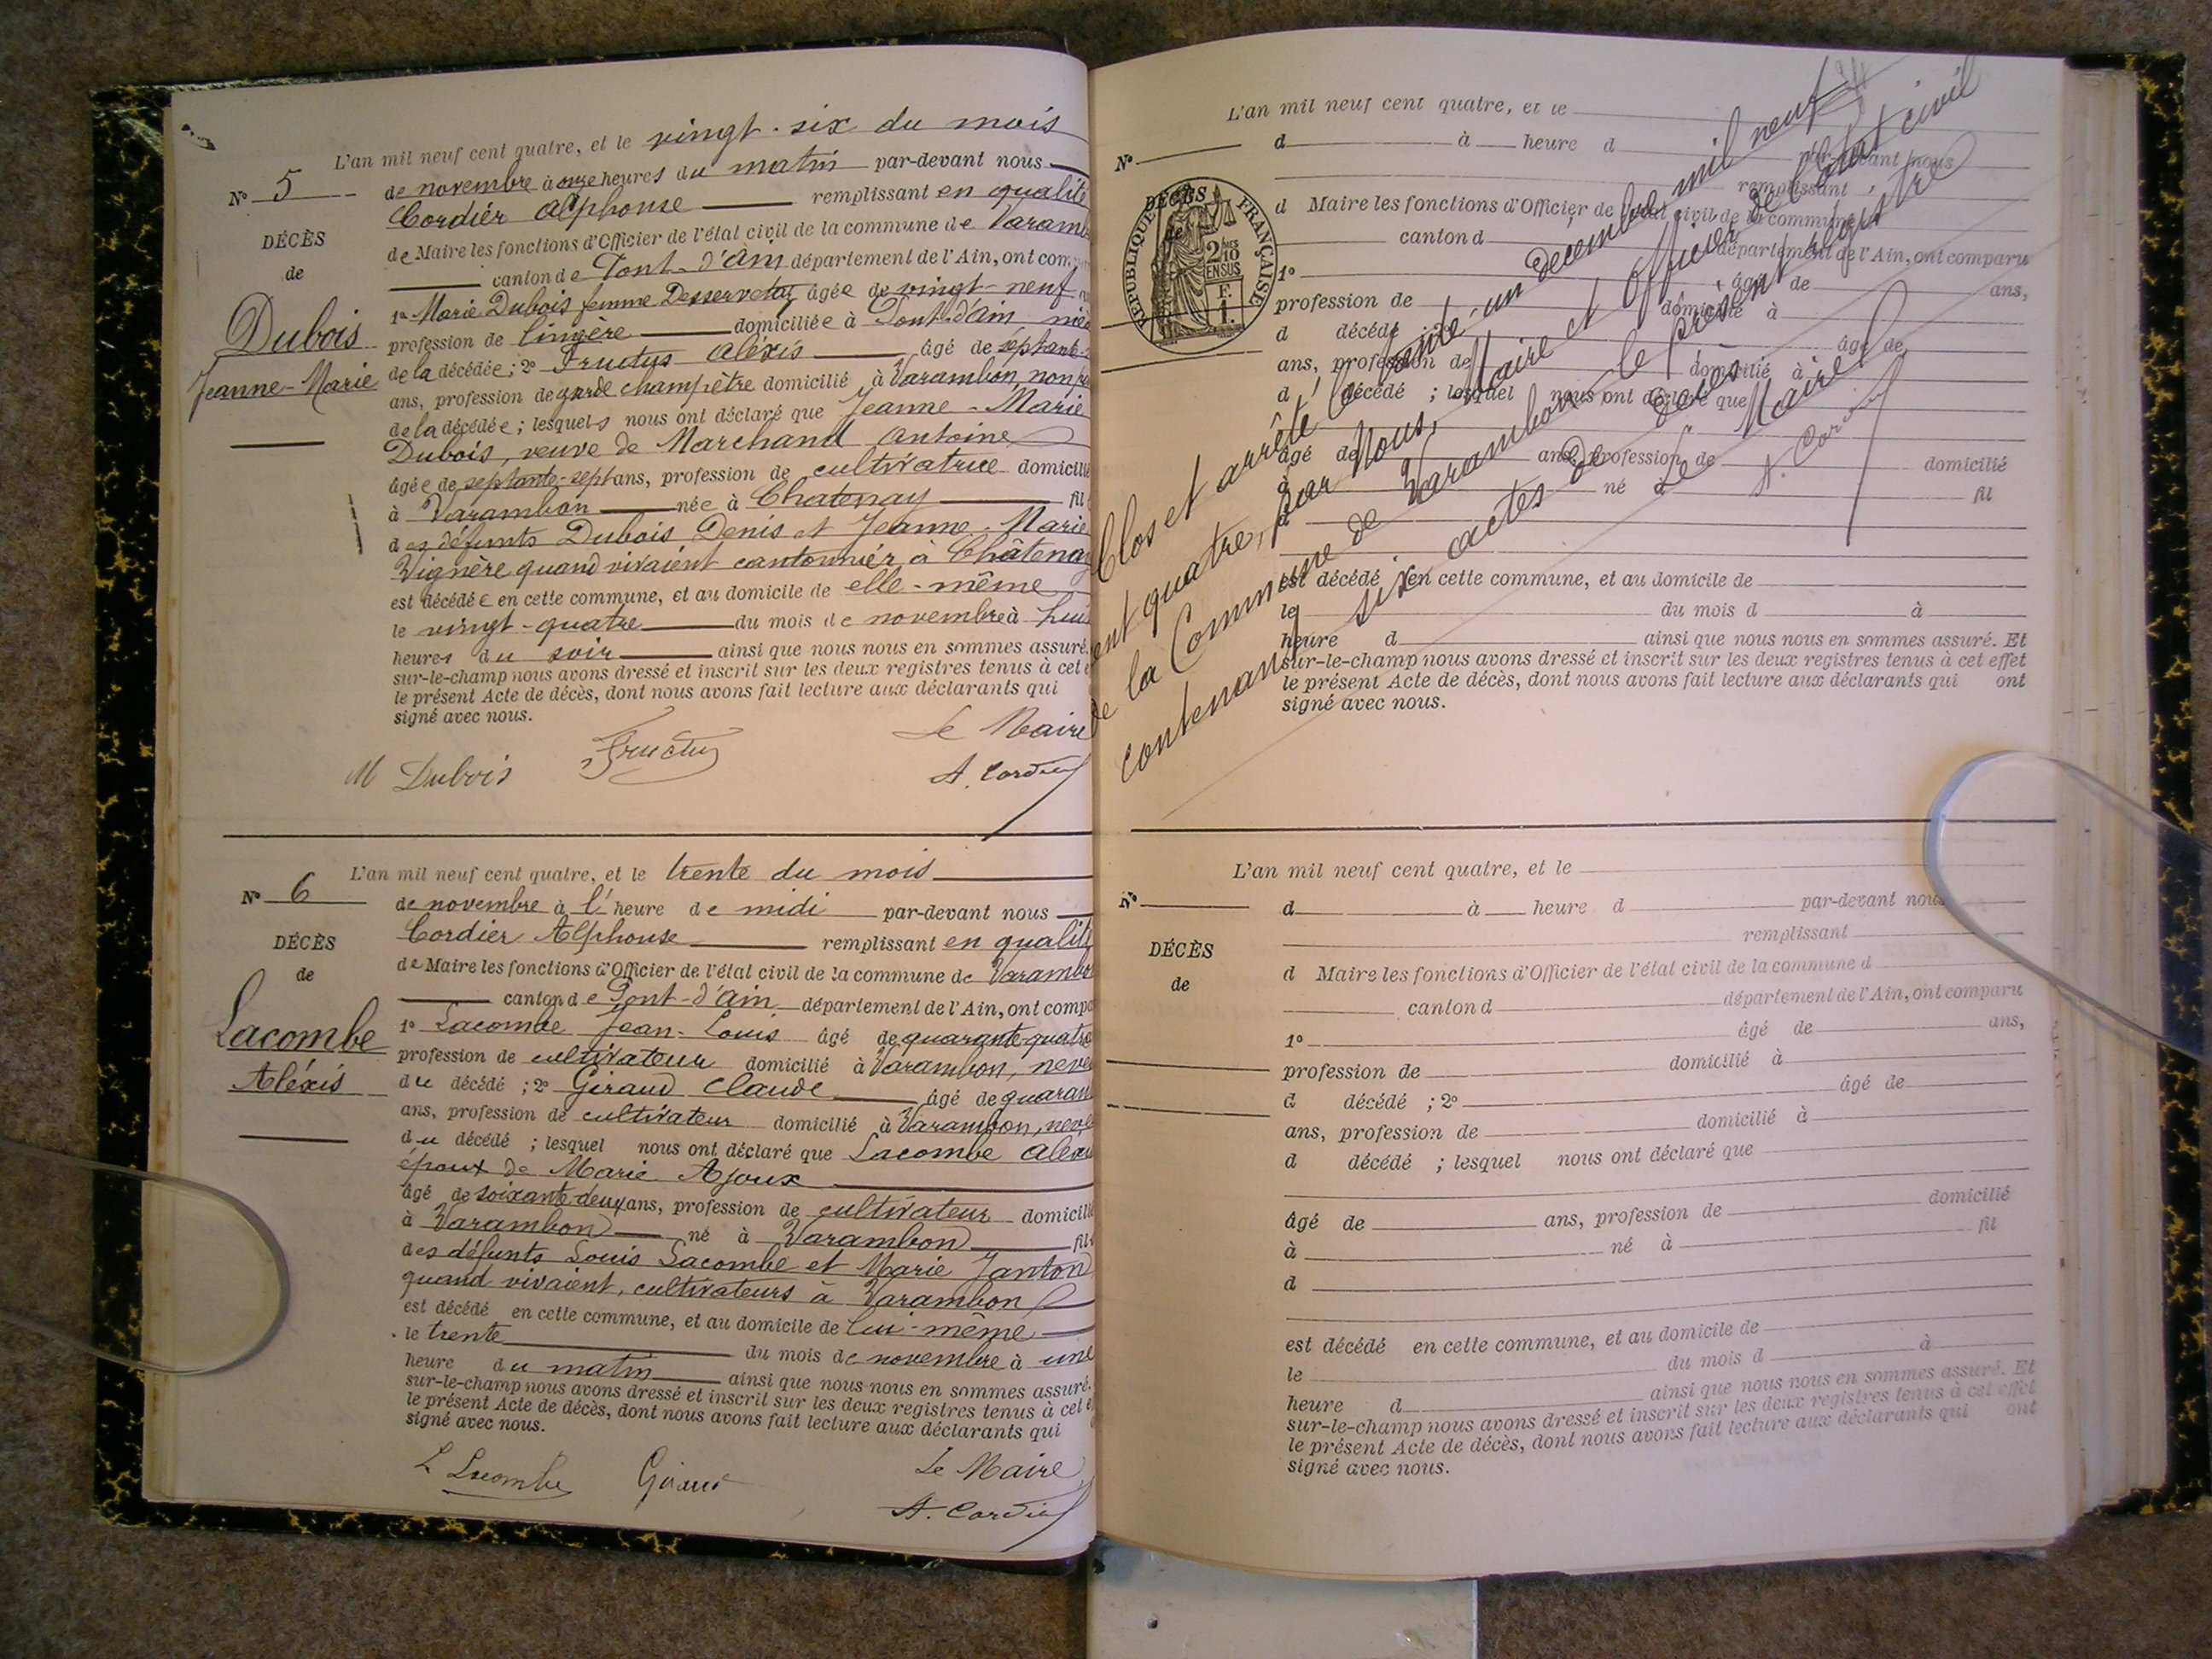 L'an mil neuf cent quatre, et le vingt-six du mois
N° 5
de novembre à onze heures du matin par-devant nous
Cordier Alphonse remplissant en qualité
DÉCÈS
de Maire les fonctions d'Officier de l'état civil de la commune de Varamb
de
canton de Pont-d'Ain département de l'Ain, ont com
1° Marie Dubois femme Desservetaz âgée de vingt-neuf
Dubois
profession de lingère domiciliée à Pont-d'ain, niè
Jeanne-Marie
de la décédée; 2° Fructus Aléxis âgé de septante
ans, profession de garde champêtre domicilié à Varambon, non
de la décédée; lesquels nous ont déclaré que Jeanne-Marie
Dubois, veuve de Marchand Antoine
âgée de septante-sept ans, profession de cultivatrice domicilié
à Varambon née à Chatenay fil
des défunts Dubois Denis et Jeanne-Marie
Vignère quand vivaient cantonnier à Châtenay
est décédée en cette commune, et au domicile de elle-même
le vingt-quatre du mois de novembre à huit
heures du soir ainsi que nous nous en sommes assuré.
sur-le-champ nous avons dressé et inscrit sur les deux registres tenus à cet e
le présent Acte de décès, dont nous avons fait lecture aux déclarants qui
signé avec nous.
Le Maire
M Dubois Fructus A. Cordier
L'an mil neuf cent quatre, et le trente du mois
N° 6
de novembre à l' heure de midi par-devant nous
Cordier Alphonse remplissant en qualité
DÉCÈS
de Maire les fonctions d'Officier de l'état civil de la commune de Varambo
de
canton de Pont-d'Ain département de l'Ain, ont compa
Lacombe
1° Lacombe Jean-Louis âgé de quarante-quatre
profession de cultivateur domicilié à Varambon, neve
Aléxis
du décédé; 2° Giraud Claude âgé de quaran
ans, profession de cultivateur domicilié à Varambon, neve
du décédé; lesquel nous ont déclaré que Lacombe Aléxis
époux de Marie Ajoux
âgé de soixante-deux ans, profession de cultivateur domicilié
à Varambon né à Varambon fils
des défunts Louis Lacombe et Marie Janton
quand vivaient, cultivateurs à Varambon
est décédé en cette commune, et au domicile de lui-même
le trente du mois de novembre à une
heure du matin ainsi que nous nous en sommes assuré.
sur-le-champ nous avons dressé et inscrit sur les deux registres tenus à cet e
le présent Acte de décès, dont nous avons fait lecture aux déclarants qui
signé avec nous.
Le Maire
L Lacombe Giraud A. Cordier
L'an mil neuf cent quatre, et le
N° d à heure d par-devant nous
remplissant
DÉCÈS
de
RÉPUBLIQUE FRANÇAISE
2/10 EN SUS
F. 1.
d Maire les fonctions d'Officier de l'état civil de la commune d
canton d département de l'Ain, ont comparu
1° âgé de ans,
profession de domicilié à
d décédé; 2° âgé de
ans, profession de domicilié à
d décédé; lesquel nous ont déclaré que
âgé de ans, profession de domicilié
à né à fil
d
est décédé en cette commune, et au domicile de
le du mois d à
heure d ainsi que nous nous en sommes assuré. Et
sur-le-champ nous avons dressé et inscrit sur les deux registres tenus à cet effet
le présent Acte de décès, dont nous avons fait lecture aux déclarants qui ont
signé avec nous.
Clos et arrêté le trente-un décembre mil neuf
cent quatre, par Nous, Maire et Officier de l'état civil
de la Commune de Varambon le présent régistre
contenant six actes de décès
Le Maire
A. Cordier
L'an mil neuf cent quatre, et le
N° d à heure d par-devant nous
remplissant
DÉCÈS
d Maire les fonctions d'Officier de l'état civil de la commune d
de
canton d département de l'Ain, ont comparu
1° âgé de ans,
profession de domicilié à
d décédé; 2° âgé de
ans, profession de domicilié à
d décédé; lesquel nous ont déclaré que
âgé de ans, profession de domicilié
à né à fil
d
est décédé en cette commune, et au domicile de
le du mois d à
heure d ainsi que nous nous en sommes assuré. Et
sur-le-champ nous avons dressé et inscrit sur les deux registres tenus à cet effet
le présent Acte de décès, dont nous avons fait lecture aux déclarants qui ont
signé avec nous.